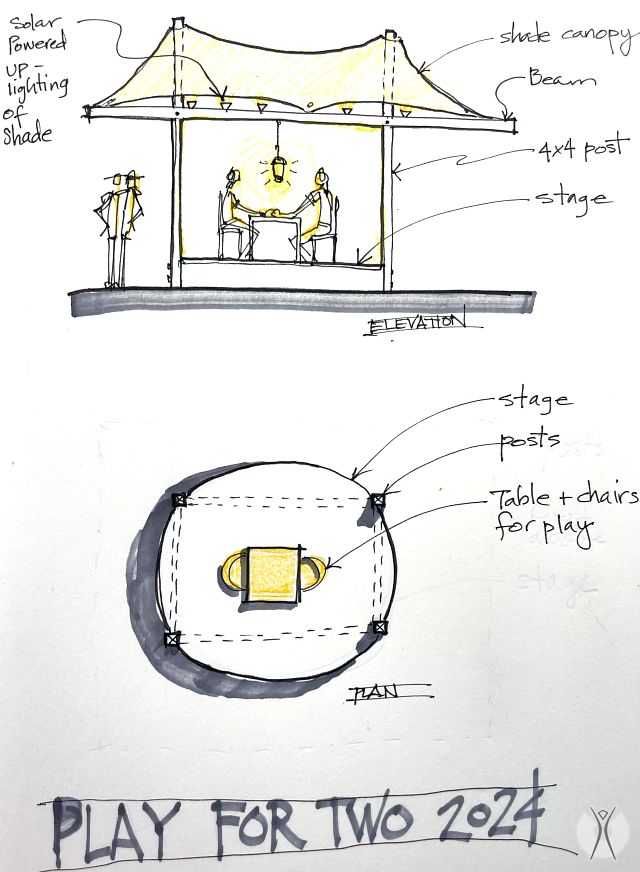 Solar
Powered
up-
lighting
of
Shade
shade canopy
Beam
4x4 post
stage
ELEVATION
stage
posts
Table + chairs
for play
PLAN
PLAY FOR TWO 2024